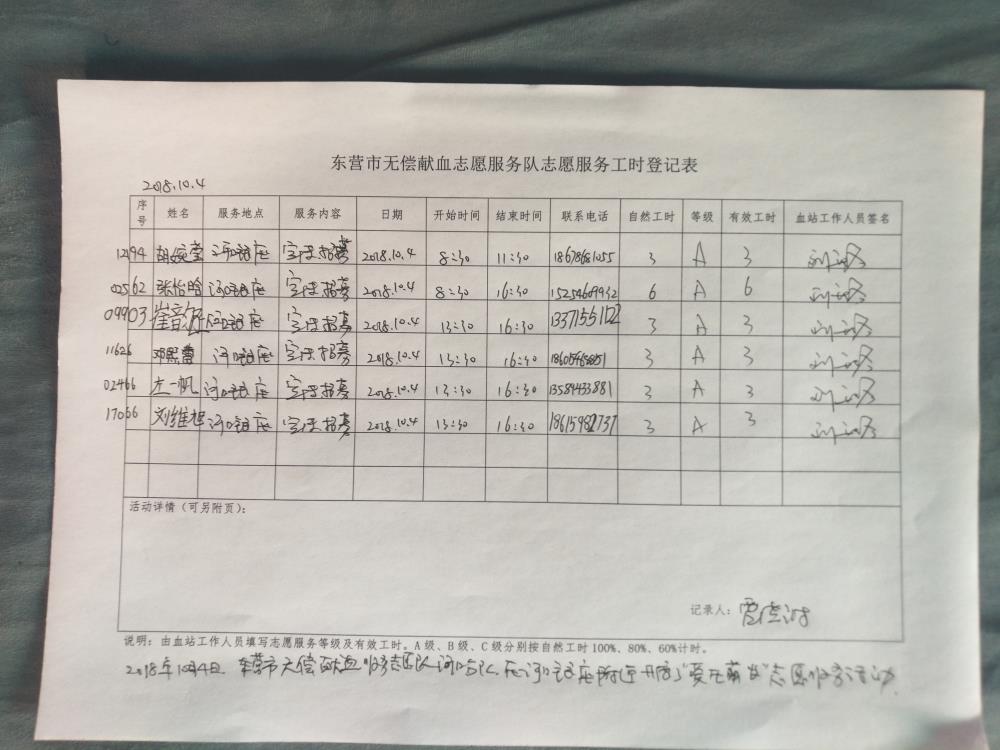 东营市无偿献血志愿服务队志愿服务工时登记表
2018.10.4
序号 姓名 服务地点 服务内容 日期 开始时间 结束时间 联系电话 自然工时 等级 有效工时 血站工作人员签名
12194 胡婉莹 河口献血屋 宣传招募 2018.10.4 8:30 11:30 18678681055 3 A 3
02562 张怡晗 河口献血屋 宣传招募 2018.10.4 8:30 16:30 15254609932 6 A 6
09903 崔音 河口献血屋 宣传招募 2018.10.4 13:30 16:30 3 A 3
11626 邓熙蕾 河口献血屋 宣传招募 2018.10.4 13:30 16:30 3 A 3
02466 左一帆 河口献血屋 宣传招募 2018.10.4 13:30 16:30 3 A 3
17066 刘维旭 河口献血屋 宣传招募 2018.10.4 13:30 16:30 3 A 3
活动详情（可另附页）：
记录人：
说明：由血站工作人员填写志愿服务等级及有效工时。A级、B级、C级分别按自然工时100%、80%、60%计时。
2018年10月4日，东营市无偿献血服务志愿队河口分队，在河口献血屋附近开展了“爱无萌发”志愿服务活动